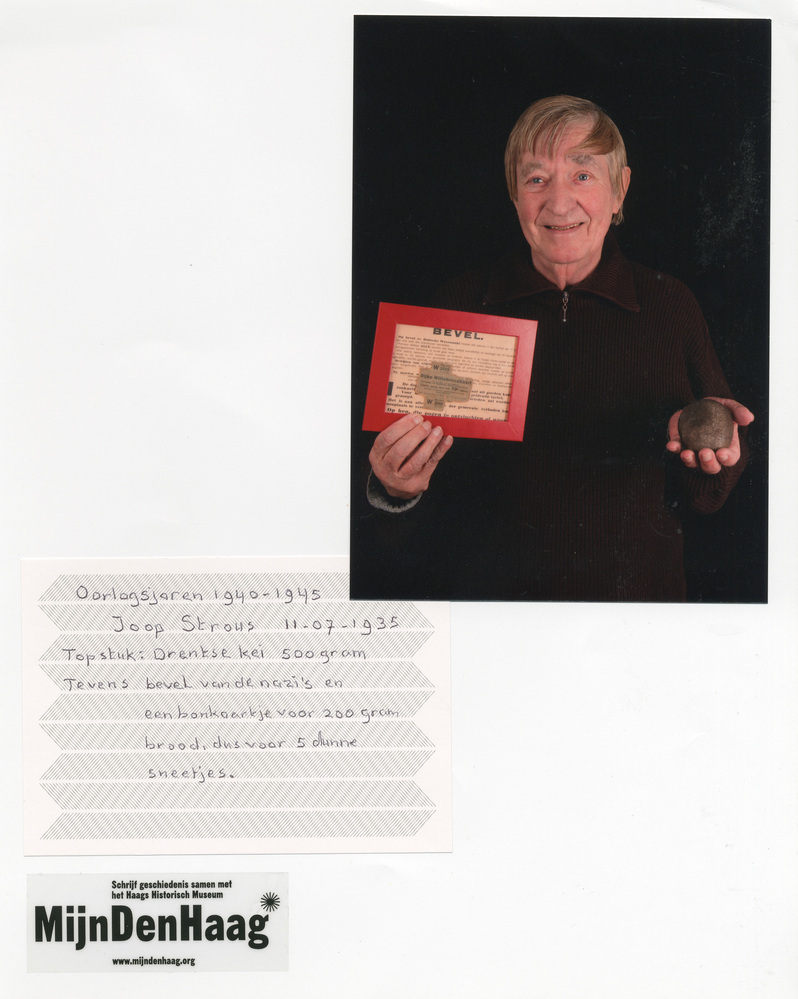 BEVEL.
Oorlogsjaren 1940-1945
Joop Strous 11-07-1935
Topstuk: Drentse kei 500 gram
Tevens bevel van de nazi's en
een bonkaartje voor 200 gram
brood, dus voor 5 dunne
sneetjes.
Schrijf geschiedenis samen met
het Haags Historisch Museum
MijnDenHaag
www.mijndenhaag.org